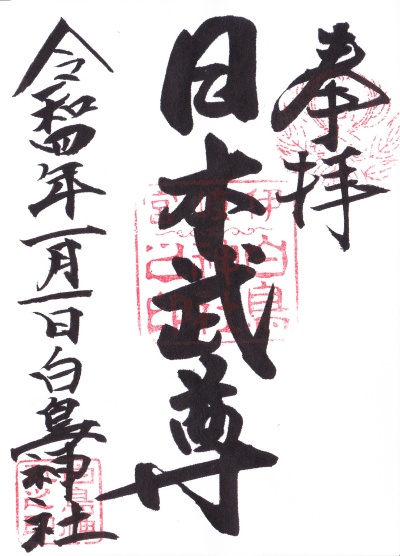 奉拝
日本武尊
令和四年一月一日白鳥神社